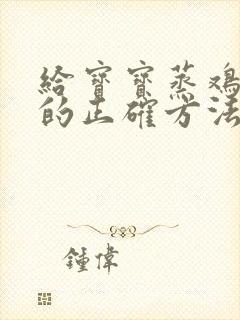 給寶寶蒸鸡
的正確方法
鍾偉